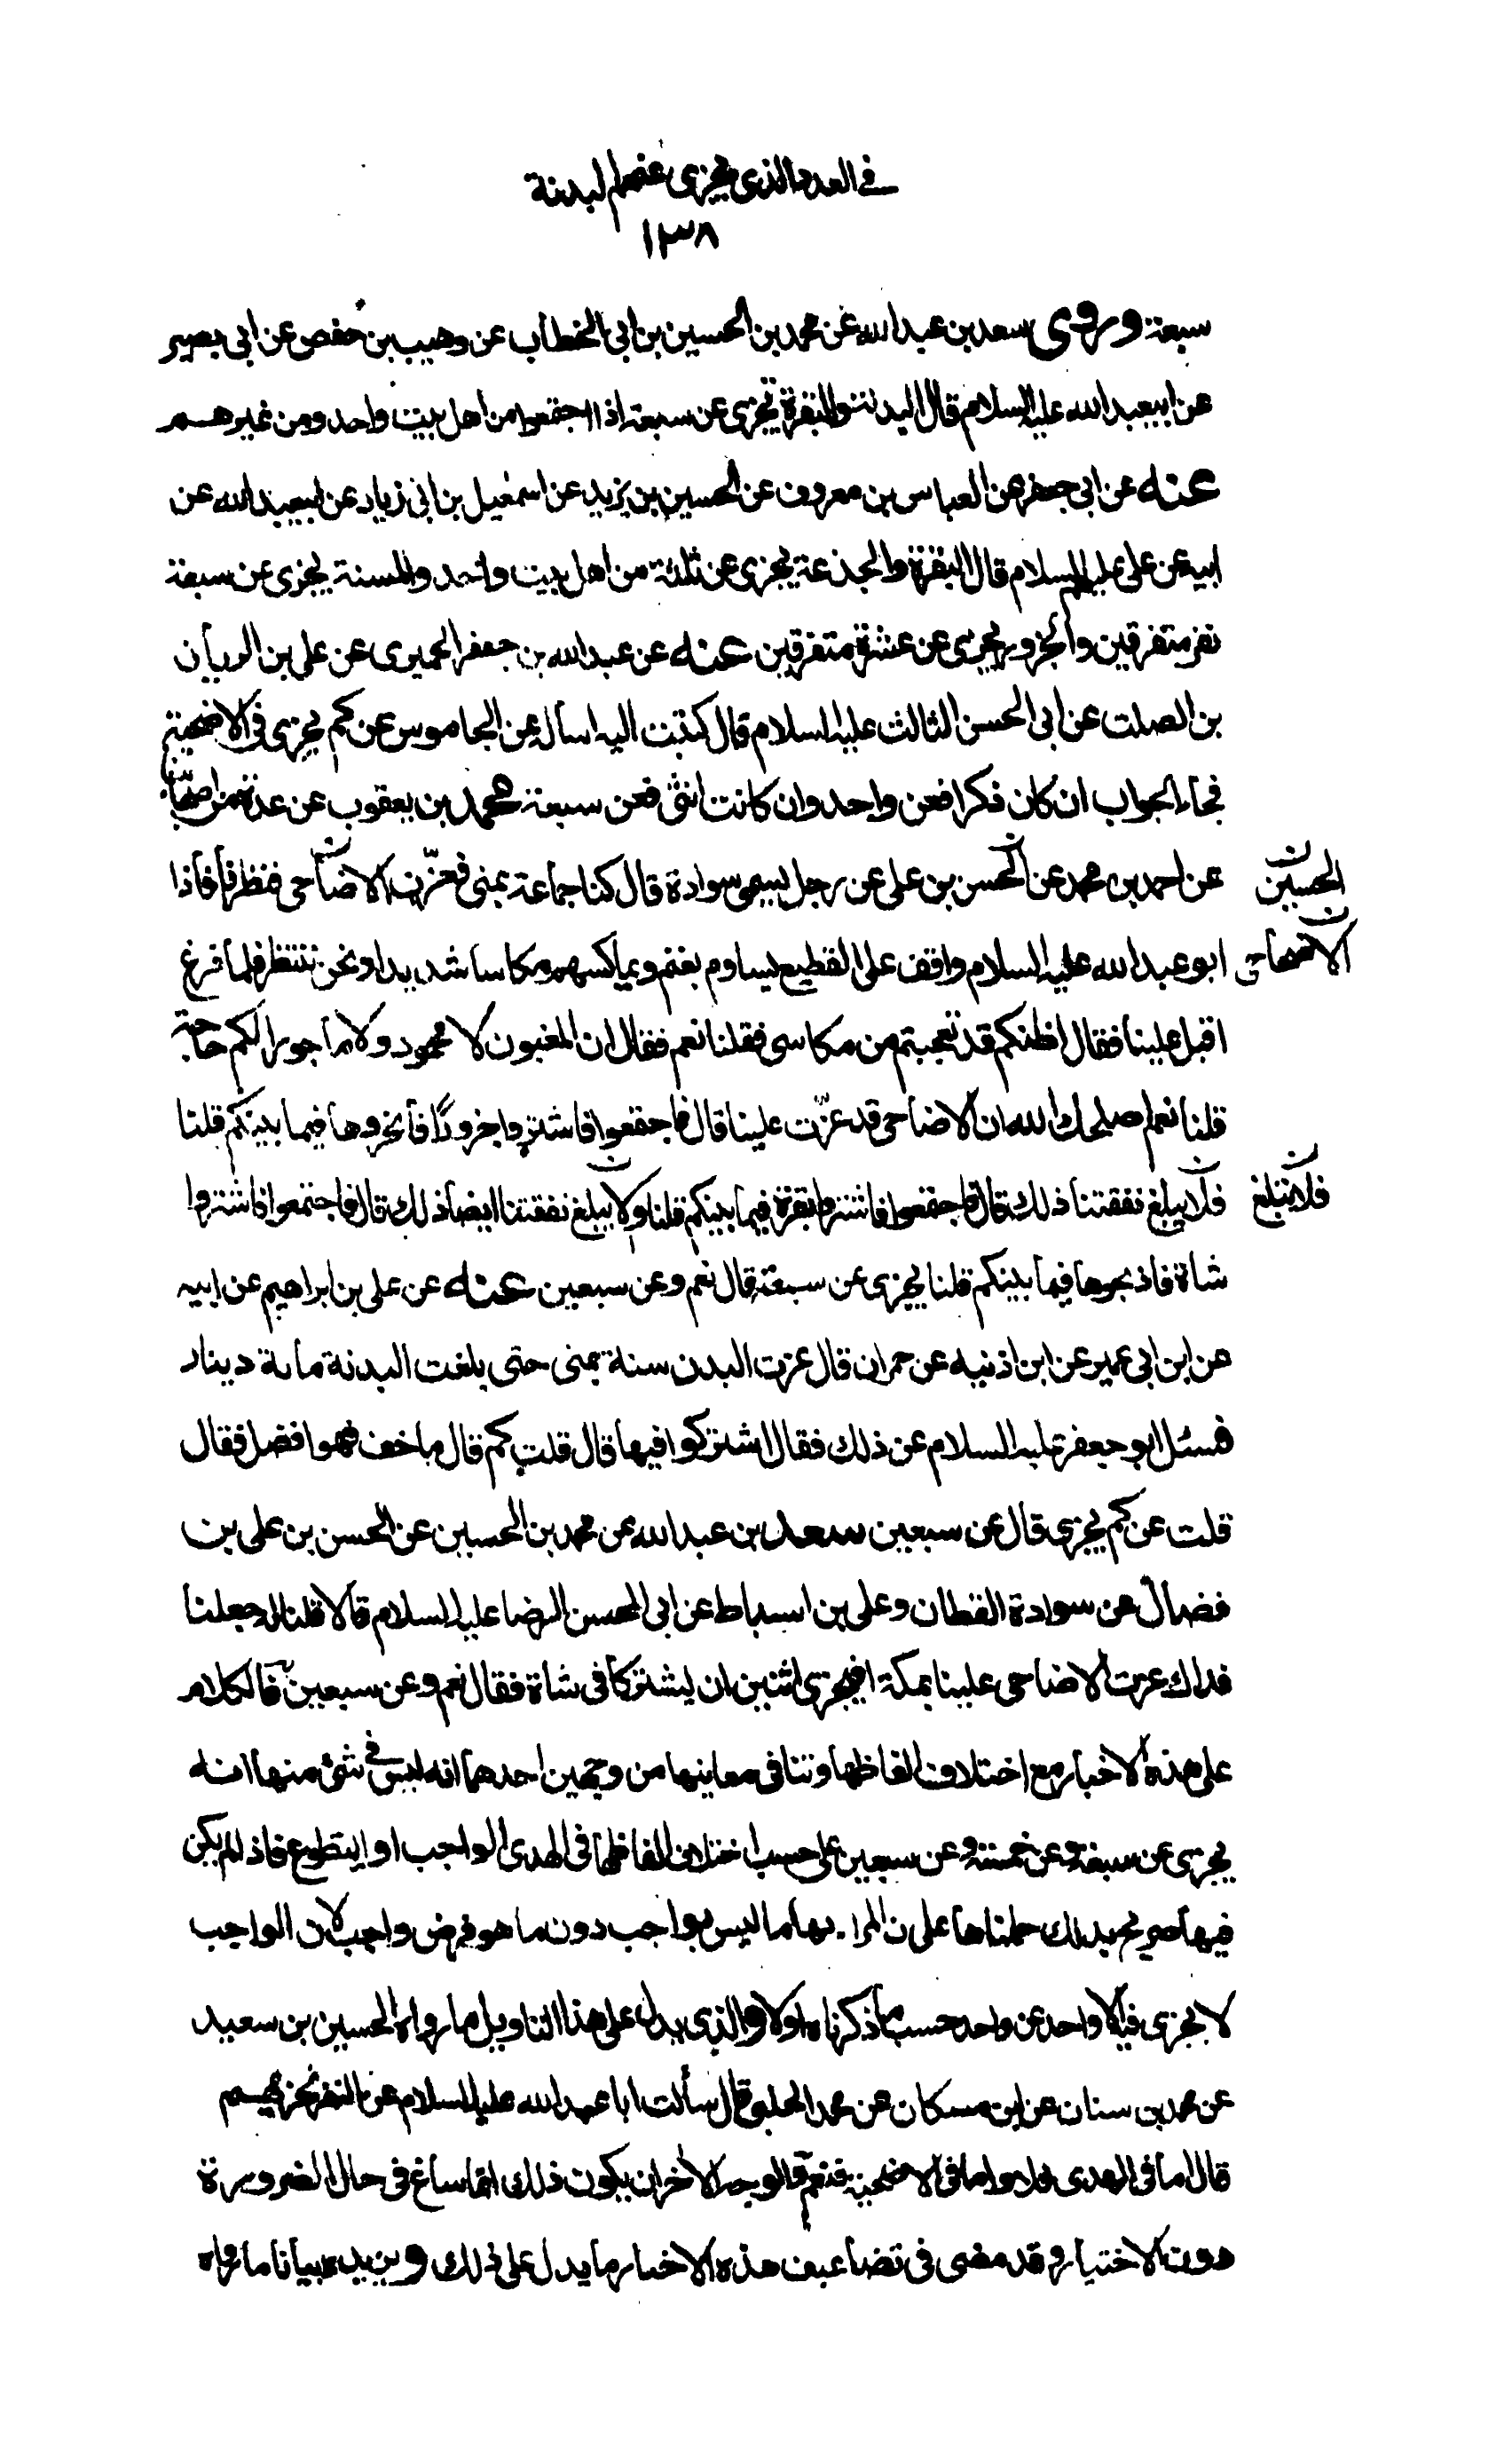 في العدد الذي يجزى عنهم البدنة
١٣٨
سبعة وروى سعد بن عبد الله عن محمد بن الحسين بن ابى الخطاب عن وهيب بن حفص عن ابى بصير
عن ابيعبد الله عليه السلام قال البدنة والبقرة تجزى عن سبعة اذا اجتمعوا من اهل بيت واحد ومن غيرهم
عنه عن ابى جعفر عن العباس بن معروف عن الحسين بن يزيد عن اسمعيل بن ابى زياد عن ابيعبد الله عن
ابيه عن على عليهم السلام قال البقرة والجذعة يجزى عن ثلثة من اهل بيت واحد والمسنة يجزى عن سبعة
نفر متفرقين والجزور يجزى عن عشرة متفرقين عنه عن عبد الله بن جعفر الحميرى عن على بن الريان
بن الصلت عن ابى الحسن الثالث عليه السلام قال كتبت اليه اسأله عن الجاموس عن كم يجزى فى الاضحية
فجاء الجواب ان كان ذكرا فعن واحد وان كانت انثى فعن سبعة محمد بن يعقوب عن عدة من اصحابنا
عن احمد بن محمد عن الحسن بن على عن رجل يسمى سوادة قال كنا جماعة بمنى فعزّت الاضاحى فنظرنا فاذا
الحسين ن
ابو عبد الله عليه السلام واقف على القطيع يساوم بغنم ويماكسهم مكاسا شديدا ونحن ننتظر فلما فرغ
الاضاحى ن
اقبل علينا فقال اظنكم قد تعجبتم من مكاسى فقلنا نعم فقال ان المغبون لا محمود ولا مأجور الكم حاجة
قلنا نعم اصلحك الله ان الاضاحى قد عزّت علينا قال فاجتمعوا فاشتروا جزورًا فانحروها فيما بينكم قلنا
فلا يبلغ نفقتنا ذلك قال فاجتمعوا فاشتروا بقرة فيما بينكم قلنا ولا يبلغ نفقتنا ايضا ذلك قال فاجتمعوا فاشتروا
فلا تبلغ ن
شاة فاذبحوها فيما بينكم قلنا يجزى عن سبعة قال نعم وعن سبعين عنه عن على بن ابراهيم عن ابيه
عن ابن ابى عمير عن ابن اذنيه عن حمران قال عزت البدن سنة بمنى حتى بلغت البدنة مائة دينار
فسئل ابو جعفر عليه السلام عن ذلك فقال اشتركوا فيها قال قلت كم قال ما خف فهو افضل فقال
قلت عن كم يجزى قال عن سبعين سعد بن عبد الله عن محمد بن الحسين عن الحسن بن على بن
فضال عن سوادة القطان وعلى بن اسباط عن ابى الحسن الرضا عليه السلام قالا قلنا له جعلنا
فداك عزت الاضاحى علينا بمكة افيجزى اثنين ان يشتركا فى شاة فقال نعم وعن سبعين فالكلام
على هذه الاخبار مع اختلاف الفاظها وتنافى معاينها من وجهين احدهما انه ليس فى شئ منها انه
يجزى عن سبعة وعن خمسة وعن سبعين على حسب اختلاف الفاظها فى الهدى الواجب او التطوع فاذا لم يكن
فيها صريح بذلك حملناها على ان المراد بها ما ليس بواجب دون ما هو فرض واجب لان الواجب
لا يجزى فيه الا واحد عن واحد حسب ما ذكرناه اولا والذى يدل على هذا التاويل ما رواه الحسين بن سعيد
عن محمد بن سنان عن ابن مسكان عن محمد الحلبى قال سألت ابا عبد الله عليه السلام عن النفر تجزيهم
قال اما فى الهدى فلا واما فى الاضحية فنعم والوجه الآخر ان يكون ذلك انما ساغ فى حال الضرورة
دون الاختيار وقد مضى فى تضاعيف هذه الاخبار ما يدل على ذلك ويزيده بيانا ما رواه